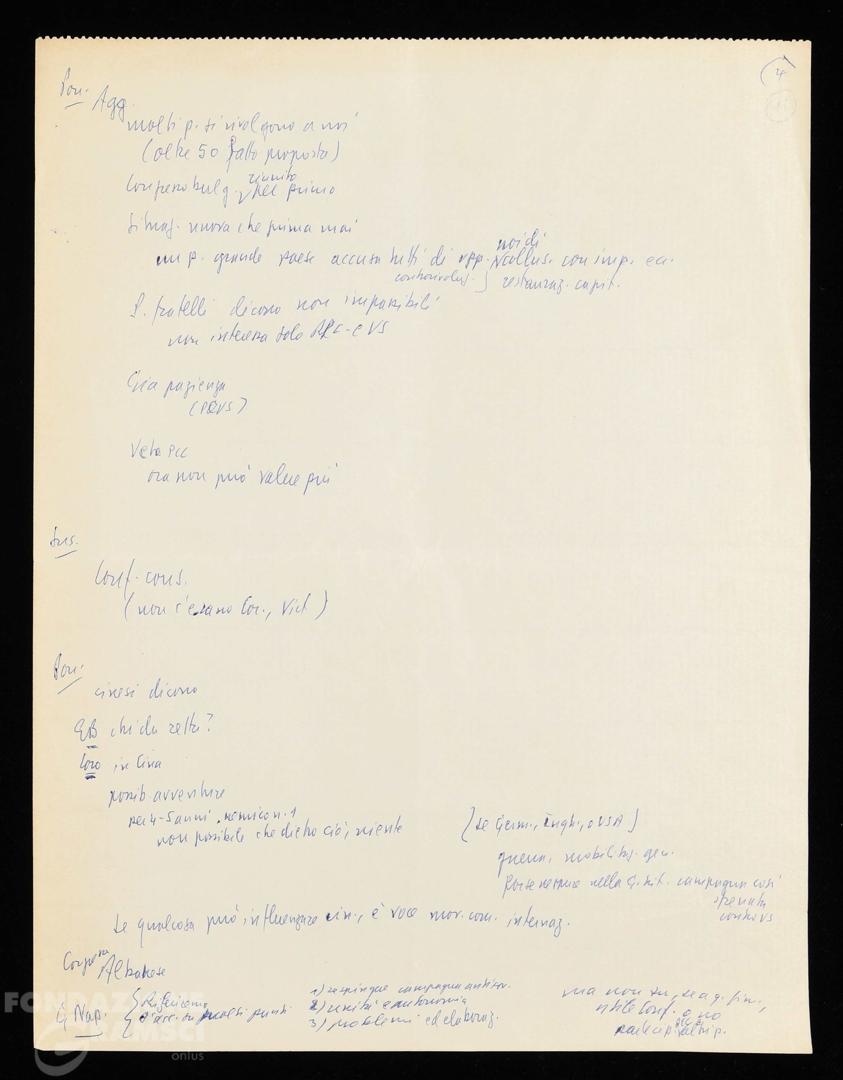 4
Pon.
Agg.
molti p. si rivolgono a noi
(oltre 50 fatto proposta)
Congresso bulg. riunito per primo
Situaz. nuova che prima mai
un p. grande paese accusa tutti di opp. noi di collus. con imp. ecc.
controrivoluz. restauraz. capit.
P. fratelli dicono non impassibili
non interessa solo e US
Cina pazienza
(PCUS)
Veto PCC
ora non può valere più
Sus.
Conf. cons.
(non c'erano Cor., Viet)
Pon.
cinesi dicono
EB chi dà retta?
Loro in Cina
possib. avventure
per 4-5 anni nemico n. 1
non possibile che dietro ciò, niente
[se Germ., Ingh., o USA]
guerra, mobilitaz. gen.
Forse neppure nella G. Hit. campagna così
sfrenata
contro US
Se qualcosa può influenzare cin., è voce mov. com. internaz.
Congresso
Albanese
G. Nap.
Riferiremo
D'acc. su molti punti
1) respingere campagna antisov.
2) unità e autonomia
3) problemi ed elaboraz.
ma non su se a q. fin.,
utile Conf. o no
partecip. altri p.
FONDAZIONE
GRAMSCI
onlus